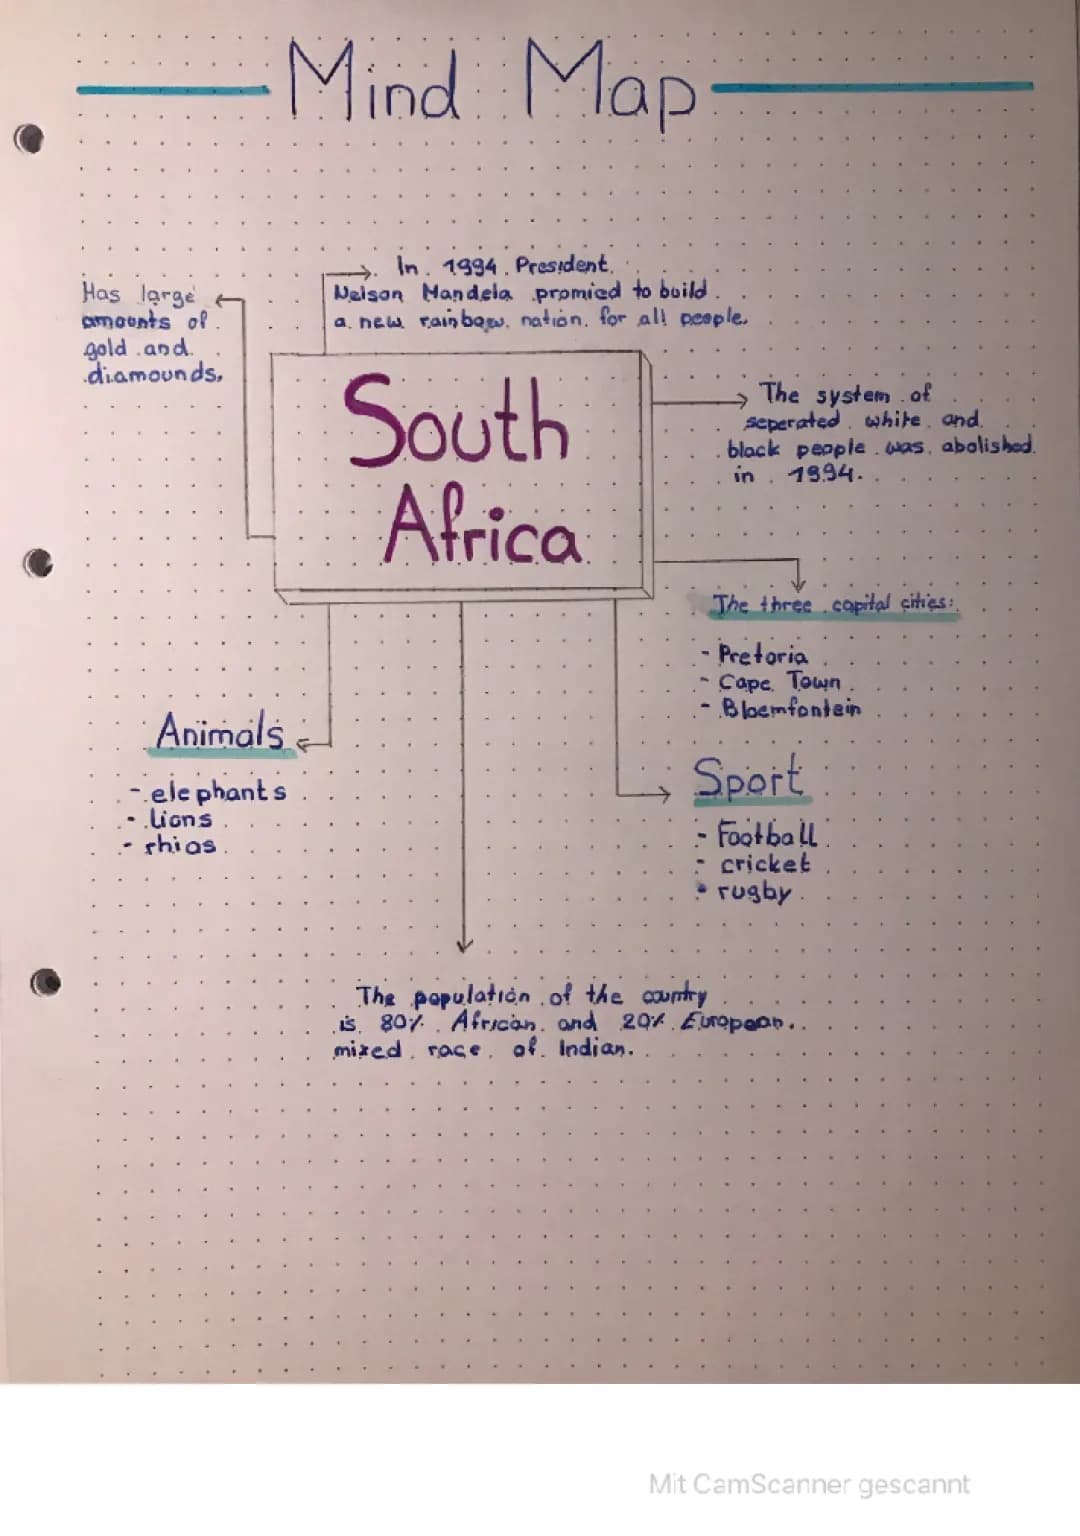 Mind Map
In 1994 President
Nelson Mandela promied to build
a new rainbow nation for all people.
Has large
amounts of
gold and
diamounds.
South
Africa
The system of
seperated white and
black people was abolished
in 1994.
The three capital cities:
- Pretoria
- Cape Town
- Bloemfontein
Animals
- elephants
- Lions
- rhios
Sport
- Football
- cricket
- rugby
The population of the country
is 80% African and 20% European
mixed race of Indian.
Mit CamScanner gescannt